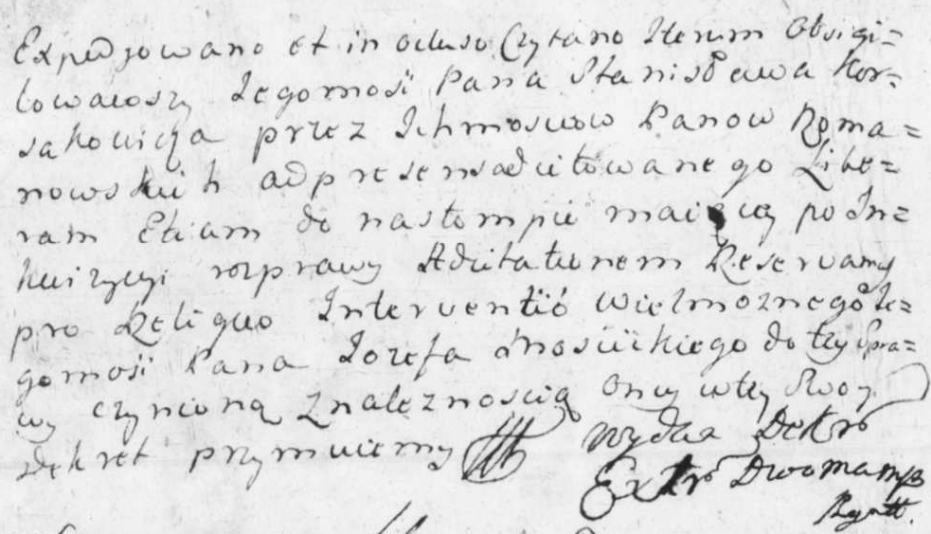 Expedjowano et in ocluso Czytano Iterum Obsigi=
lowawszy Jegomosi Pana Stanisława Kor=
sakowicza przez Ichmosciow Panow Roma=
nowskich adpresensadcitowanego Libe=
ram Etiam do nastompić maiącey po In=
kwizycyi rozprawy Adcitationem Reserwamy
pro Reliquo Interventió wielmoznego Je=
gomosi Pana Jozefa Mosiickiego do tey Spra=
wy czynioną Znaleznoscią Oney w tey Swoy
dekret przymuiemy
Wydaa Dekr
Extr